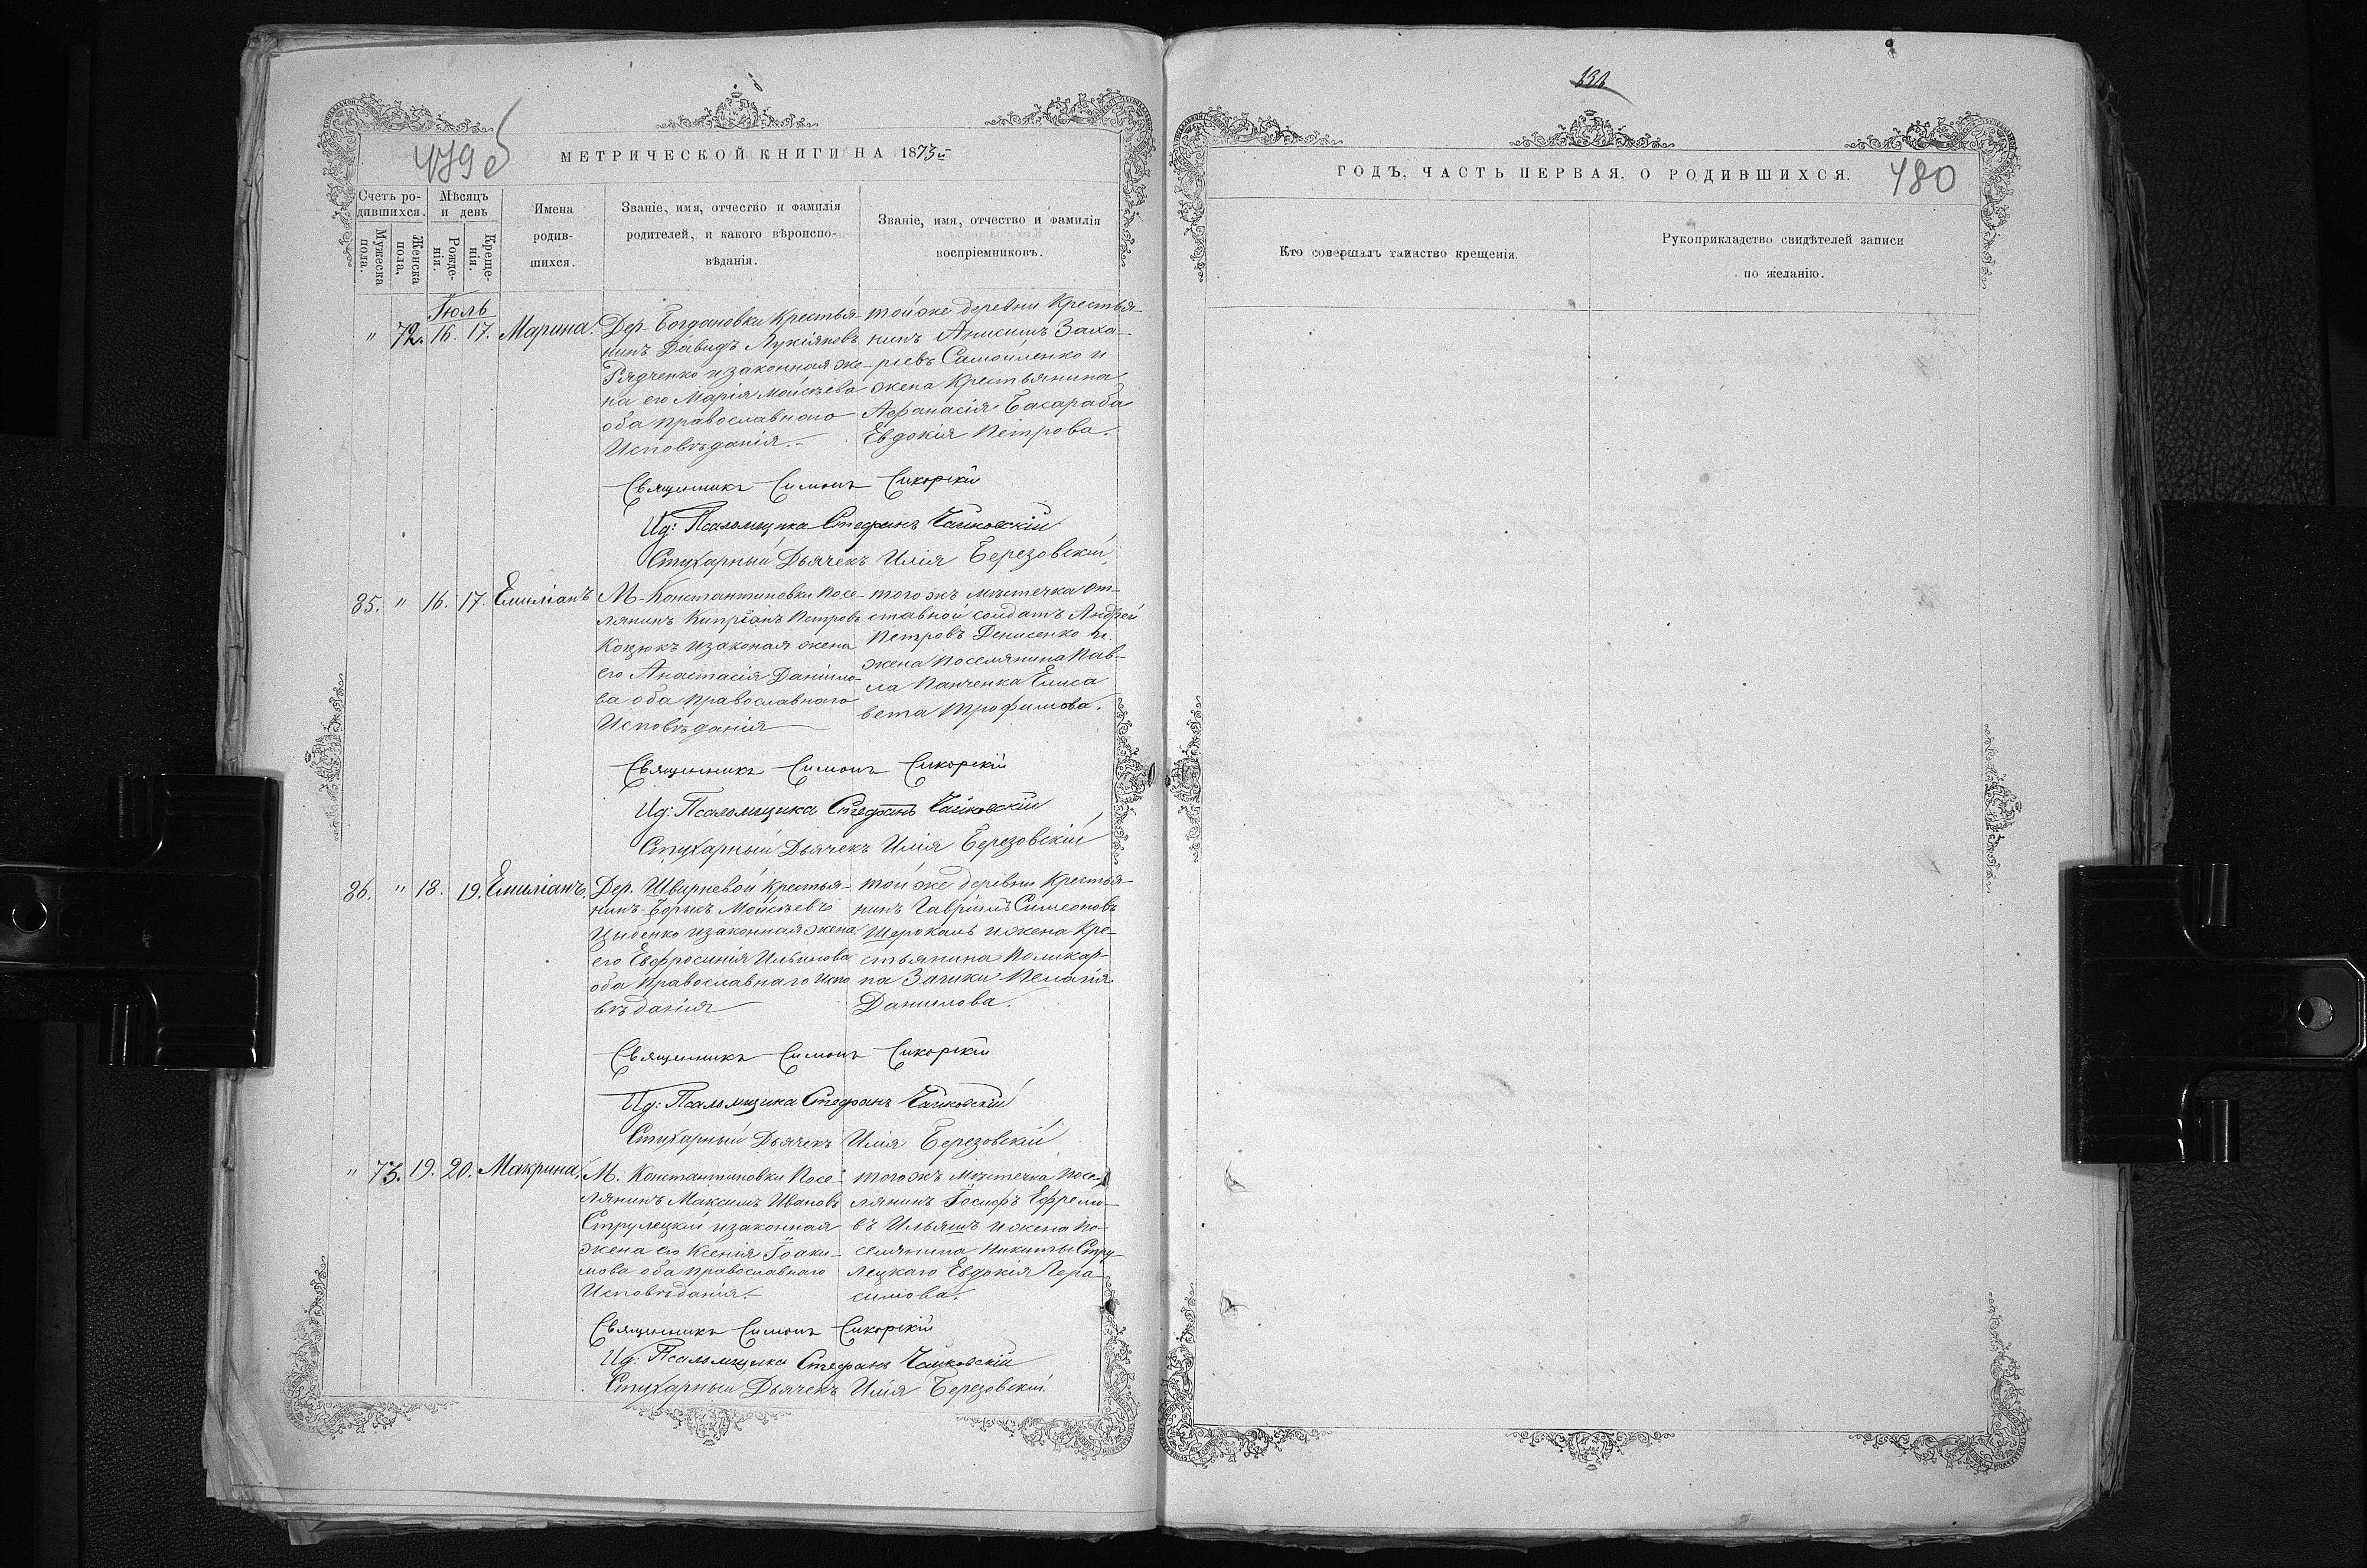 479 б
МЕТРИЧЕСКОЙ КНИГИ НА 1873й
Счетъ родившихся.
Мужеска пола.
Женска пола.
Мѣсяцъ и день
Рожденія.
Крещенія.
Имена родившихся.
Званіе, имя, отчество и фамилія
родителей, и какого вѣроиспо-
вѣданія.
Званіе, имя, отчество и фамилія
воспріемниковъ.
Іюль
" 72. 16. 17. Марина.
Дер. Богдановки Крестья-
нинъ Давидъ Лукіяновъ
Рядченко и законная же-
на его Марія Моисѣева
оба православнаго
Исповѣданія.
той же деревни Крестья-
нинъ Анисимъ Заха-
ріевъ Самойленко и
жена Крестьянина
Афанасія Басараба
Евдокія Петрова.
Священникъ Симонъ Сикорскій
Ид: Псаломщика Стефанъ Чайковскій
Стихарный Дьячекъ Илія Березовскій
85. " 16. 17. Емиліанъ
М. Константиновки Посе-
лянинъ Кипріанъ Петровъ
Коцюкъ и законая жена
его Анастасія Даніило-
ва оба православнаго
Исповѣданія
того жъ мѣстечка от-
ставной солдатъ Андрей
Петровъ Денисенко и
жена поселянина Пав-
ла Панченка Елиса
вета Трофимова.
Священникъ Симонъ Сикорскій
Ид: Псаломщика Стефанъ Чайковскій
Стихарный Дьячекъ Илія Березовскій
86. " 18. 19. Емиліанъ.
Дер. Швырневой Крестья-
нинъ Борисъ Моисѣевъ
Цыбенко и законная жена
его Евфросинія Ильинова
оба православнаго испо
вѣданія
той же деревни Крестья-
нинъ Гавріилъ Симеоновъ
Шерокаль и жена Кре-
стьянина Поликар-
па Заики Пелагія
Данилова.
Священникъ Симонъ Сикорскій
Ид: Псаломщика Стефанъ Чайковскій
Стихарный Дьячекъ Илія Березовскій
" 73. 19. 20. Макрина.
М. Константиновки Посе-
лянинъ Максимъ Ивановъ
Струлецкій и законная
жена его Ксенія Іоаки-
мова оба православнаго
Исповѣданія.
того жъ мѣстечка посе-
лянинъ Іосифъ Ефремо-
въ Ильяшъ и жена по-
селянина Никиты Стру-
лецкаго Евдокія Гера-
симова.
Священникъ Симонъ Сикорскій
Ид: Псаломщика Стефанъ Чайковскій
Стихарный Дьячекъ Илія Березовскій.
ГОДЪ, ЧАСТЬ ПЕРВАЯ. О РОДИВШИХСЯ.
480
Кто совершалъ таинство крещенія.
Рукоприкладство свидѣтелей записи
по желанію.